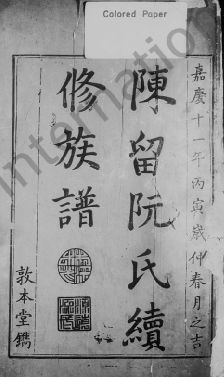 Colored Paper
嘉慶十一年丙寅歲仲春月之吉
陳留阮氏續
修族譜
敦本堂鐫
International